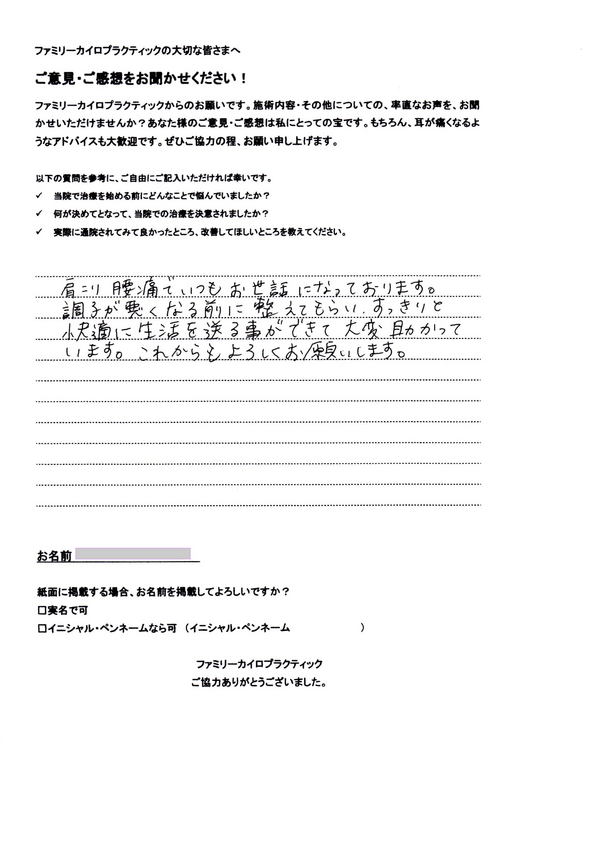 ファミリーカイロプラクティックの大切な皆さまへ
ご意見・ご感想をお聞かせください！
ファミリーカイロプラクティックからのお願いです。施術内容・その他についての、率直なお声を、お聞
かせいただけませんか？あなた様のご意見・ご感想は私にとっての宝です。もちろん、耳が痛くなるよ
うなアドバイスも大歓迎です。ぜひご協力の程、お願い申し上げます。
以下の質問を参考に、ご自由にご記入いただければ幸いです。
✓ 当院で治療を始める前にどんなことで悩んでいましたか？
✓ 何が決めてとなって、当院での治療を決意されましたか？
✓ 実際に通院されてみて良かったところ、改善してほしいところを教えてください。
肩こり 腰痛でいつもお世話になっております。
調子が悪くなる前に整えてもらい、すっきりと
快適に生活を送る事ができて大変助かって
います。これからもよろしくお願いします。
お名前
紙面に掲載する場合、お名前を掲載してよろしいですか？
□実名で可
□イニシャル・ペンネームなら可（イニシャル・ペンネーム ）
ファミリーカイロプラクティック
ご協力ありがとうございました。